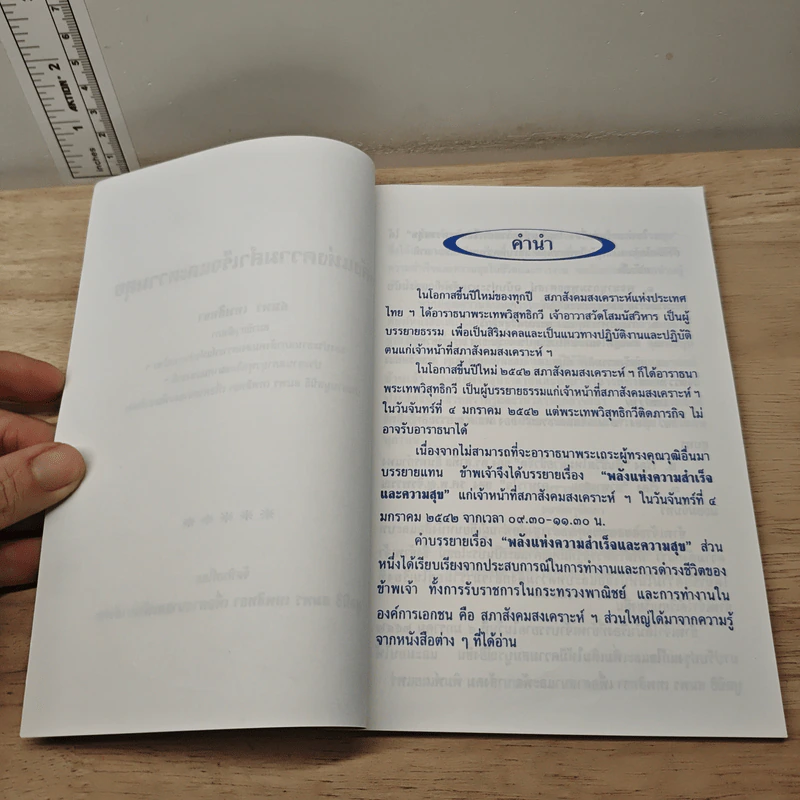 inches
1
2
ACTION
1
2
3
4
5
6
7
คำนำ
ในโอกาสขึ้นปีใหม่ของทุกปี สภาสังคมสงเคราะห์แห่งประเทศ
ไทย ฯ ได้อาราธนาพระเทพวิสุทธิกวี เจ้าอาวาสวัดโสมนัสวิหาร เป็นผู้
บรรยายธรรม เพื่อเป็นสิริมงคลและเป็นแนวทางปฏิบัติงานและปฏิบัติ
ตนแก่เจ้าหน้าที่สภาสังคมสงเคราะห์ ฯ
ในโอกาสขึ้นปีใหม่ ๒๕๔๒ สภาสังคมสงเคราะห์ ฯ ก็ได้อาราธนา
พระเทพวิสุทธิกวี เป็นผู้บรรยายธรรมแก่เจ้าหน้าที่สภาสังคมสงเคราะห์ ฯ
ในวันจันทร์ที่ ๔ มกราคม ๒๕๔๒ แต่พระเทพวิสุทธิกวีติดภารกิจ ไม่
อาจรับอาราธนาได้
เนื่องจากไม่สามารถที่จะอาราธนาพระเถระผู้ทรงคุณวุฒิอื่นมา
บรรยายแทน ข้าพเจ้าจึงได้บรรยายเรื่อง “พลังแห่งความสำเร็จ
และความสุข” แก่เจ้าหน้าที่สภาสังคมสงเคราะห์ ฯ ในวันจันทร์ที่ ๔
มกราคม ๒๕๔๒ จากเวลา ๐๙.๓๐-๑๑.๓๐ น.
คำบรรยายเรื่อง “พลังแห่งความสำเร็จและความสุข” ส่วน
หนึ่งได้เรียบเรียงจากประสบการณ์ในการทำงานและการดำรงชีวิตของ
ข้าพเจ้า ทั้งการรับราชการในกระทรวงพาณิชย์ และการทำงานใน
องค์การเอกชน คือ สภาสังคมสงเคราะห์ ฯ ส่วนใหญ่ได้มาจากความรู้
จากหนังสือต่าง ๆ ที่ได้อ่าน